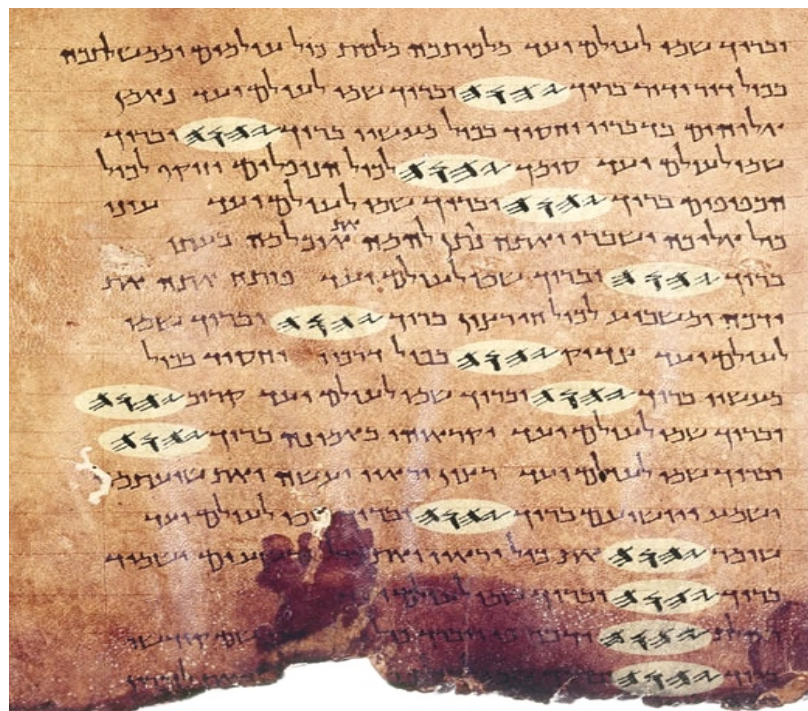 וברוך שמו לעולם ועד מלכותכה מלכות כול עולמים וממשלתכה
בכול דור ודור ברוך 𐤉𐤄𐤅𐤄 וברוך שמו לעולם ועד נאמן
אלוהים בדבריו וחסיד בכול מעשיו ברוך 𐤉𐤄𐤅𐤄 וברוך
שמו לעולם ועד סומך 𐤉𐤄𐤅𐤄 לכול הנופלים וזוקף לכול
הכפופים ברוך 𐤉𐤄𐤅𐤄 וברוך שמו לעולם ועד עיני
כול אליכה ישברו ואתה נותן להמה את אוכלמה בעתו
ברוך 𐤉𐤄𐤅𐤄 וברוך שמו לעולם ועד פותח אתה את
ידכה ומשביע לכול חי רצון ברוך 𐤉𐤄𐤅𐤄 וברוך שמו
לעולם ועד צדיק 𐤉𐤄𐤅𐤄 בכול דרכיו וחסיד בכול
מעשיו ברוך 𐤉𐤄𐤅𐤄 וברוך שמו לעולם ועד קרוב 𐤉𐤄𐤅𐤄
וברוך שמו לעולם ועד יקראוהו באמונה ברוך 𐤉𐤄𐤅𐤄
וברוך שמו לעולם ועד רצון יראיו יעשה ואת שועתמה
וישמע ויושיעם ברוך 𐤉𐤄𐤅𐤄 וברוך שמו לעולם ועד
שומר 𐤉𐤄𐤅𐤄 את כול יראיו ואת כול הרשעים ישמיד
ברוך 𐤉𐤄𐤅𐤄 וברוך שמו לעולם ועד
תהלת 𐤉𐤄𐤅𐤄 ידבר פי ויברך כול שם קודשו
ברוך 𐤉𐤄𐤅𐤄